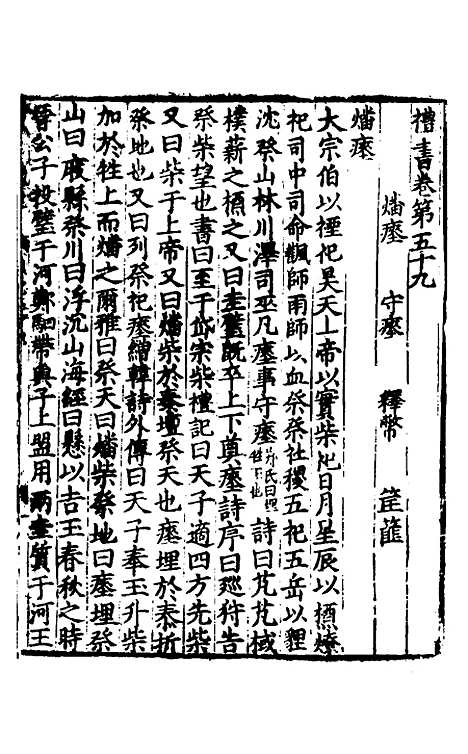 禮書卷第五十九
燔瘞 守瘞 釋幣 筐篚
燔瘞
大宗伯以禋祀昊天上帝以實柴祀日月星辰以槱燎
祀司中司命飌師雨師以血祭祭社稷五祀五岳以貍
沈祭山林川澤司巫凡瘞事守瘞 詩曰芃芃棫
樸薪之槱之又曰圭璧既卒上下奠瘞詩序曰廵狩告
祭柴望也書曰至于岱宗柴禮記曰天子適四方先柴
又曰柴于上帝又曰燔柴於泰壇祭天也瘞埋於泰折
祭地也又曰列祭祀瘞繒韓詩外傳曰天子奉玉升柴
加於牲上而燔之爾雅曰祭天曰燔柴祭地曰瘞埋祭
山曰庪縣祭川曰浮沉山海經曰懸以吉玉春秋之時
晉公子投璧于河鄭駟帶與子上盟用兩圭質于河王